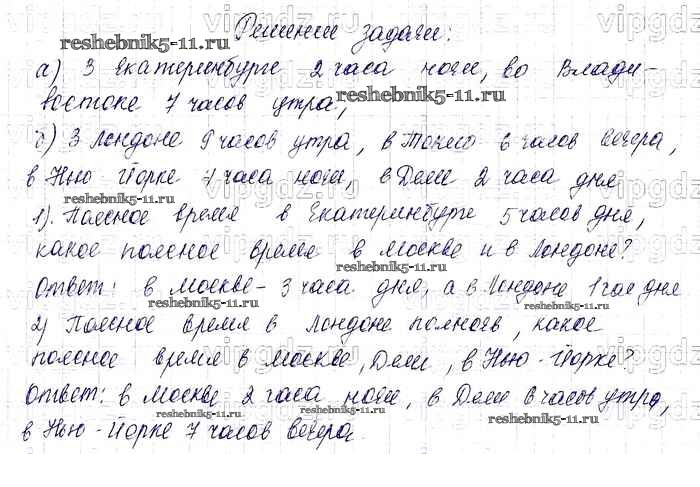 Решение задачи:
а) З Екатеринбурге 2 часа ночи, во Влади-
востоке 7 часов утра,
б) З Лондоне 9 часов утра, в Токио 6 часов вечера,
в Нью-Йорке 4 часа ночи, в Дели 2 часа дня
1). Поясное время в Екатеринбурге 5 часов дня,
какое поясное время в Москве и в Лондоне?
Ответ: в Москве - 3 часа дня, а в Лондоне 1 час дня
2) Поясное время в Лондоне полночь, какое
поясное время в Москве, Дели, в Нью-Йорке?
Ответ: в Москве 2 часа ночи, в Дели 6 часов утра,
в Нью-Йорке 7 часов вечера.
reshebnik5-11.ru
reshebnik5-11.ru
reshebnik5-11.ru
reshebnik5-11.ru
reshebnik5-11.ru
reshebnik5-11.ru
reshebnik5-11.ru
reshebnik5-11.ru
reshebnik5-11.ru
vipgdz.ru